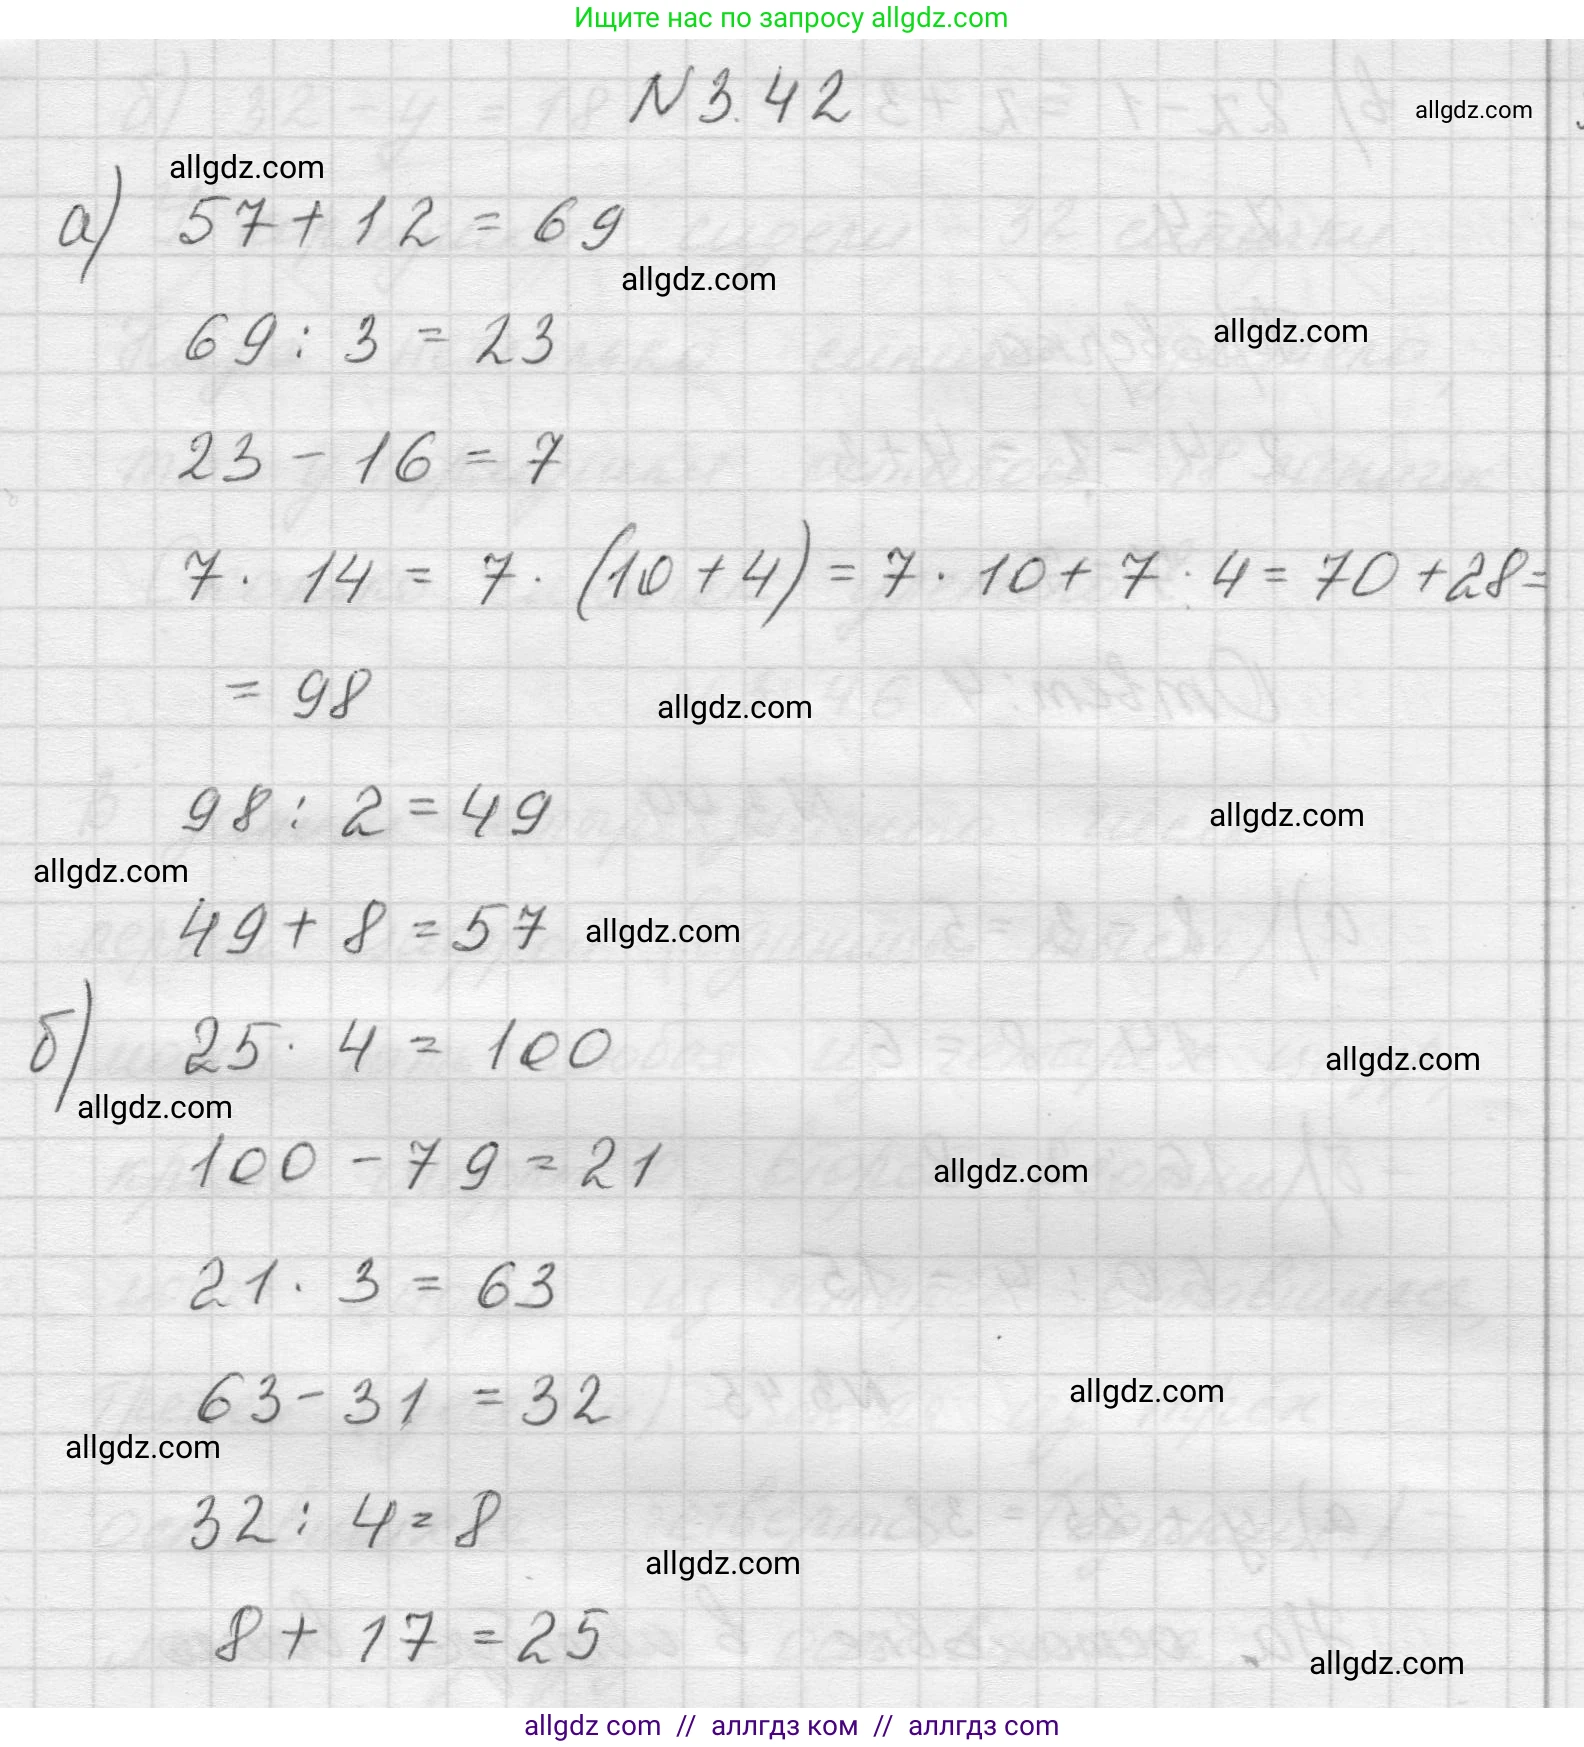 Ищите нас по запросу allgdz.com
N 3.42
allgdz.com
allgdz.com
а) 57 + 12 = 69
allgdz.com
69 : 3 = 23
allgdz.com
23 - 16 = 7
7 · 14 = 7 · (10 + 4) = 7 · 10 + 7 · 4 = 70 + 28 =
= 98
allgdz.com
98 : 2 = 49
allgdz.com
allgdz.com
49 + 8 = 57
allgdz.com
б) 25 · 4 = 100
allgdz.com
allgdz.com
100 - 79 = 21
allgdz.com
21 · 3 = 63
63 - 31 = 32
allgdz.com
allgdz.com
32 : 4 = 8
allgdz.com
8 + 17 = 25
allgdz.com
allgdz com // аллгдз ком // аллгдз com